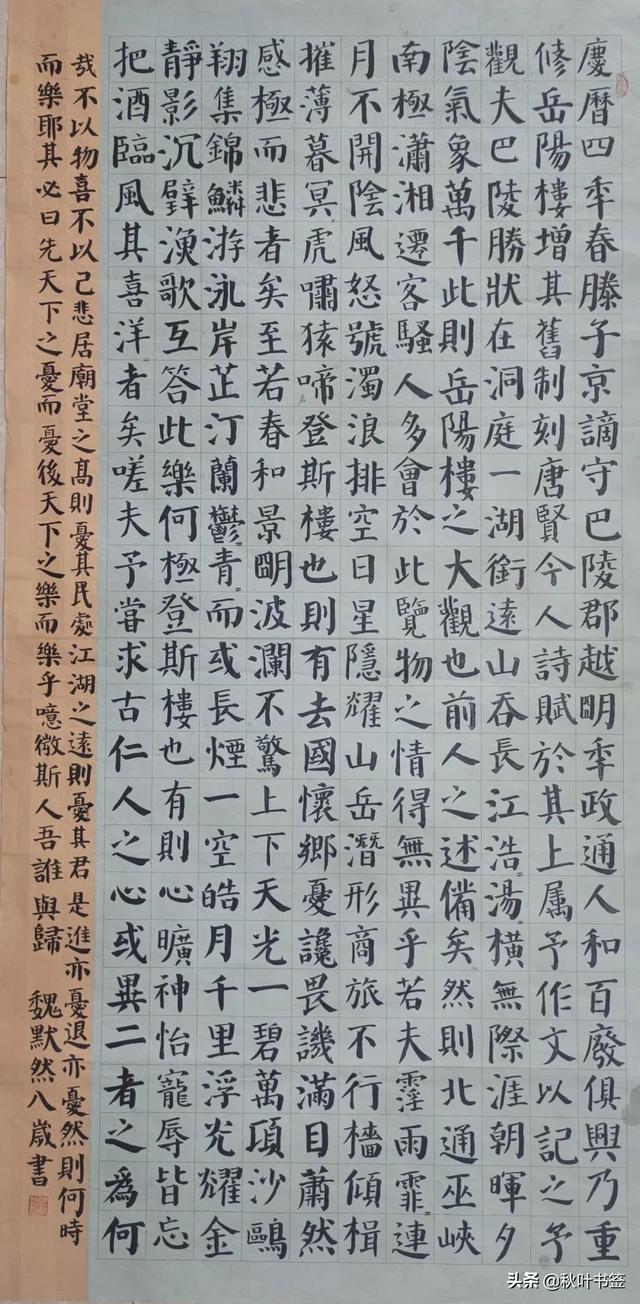 慶暦四秊春滕子京謫守巴陵郡越朙秊政通人和百廢俱興乃重
修岳陽樓增其舊制刻唐賢今人詩賦於其上属予作文以記之予
觀夫巴陵勝狀在洞庭一湖銜遠山吞長江浩湯橫無際涯朝暉夕
陰氣象萬千此則岳陽樓之大觀也前人之述備矣然則北通巫峽
南極瀟湘遷客騷人多會於此覽物之情得無異乎若夫霪雨霏連
月不開陰風怒號濁浪排空日星隱耀山岳潛形商旅不行檣傾楫
摧薄暮冥虎嘯猿啼登斯樓也則有去國懷鄉憂讒畏譏滿目蕭然
感極而悲者矣至若春和景朙波瀾不驚上下天光一碧萬頃沙鷗
翔集錦鱗游泳岸芷汀蘭鬱青而或長煙一空皓月千里浮光耀金
靜影沉璧漁歌互答此樂何極登斯樓也有則心曠神怡寵辱皆忘
把酒臨風其喜洋者矣嗟夫予嘗求古仁人之心或異二者之為何
哉不以物喜不以己悲居廟堂之高則憂其民處江湖之遠則憂其君是進亦憂退亦憂然則何時
而樂耶其必曰先天下之憂而憂後天下之樂而樂乎噫微斯人吾誰與歸 魏默然八歲書
头条 @秋叶书签